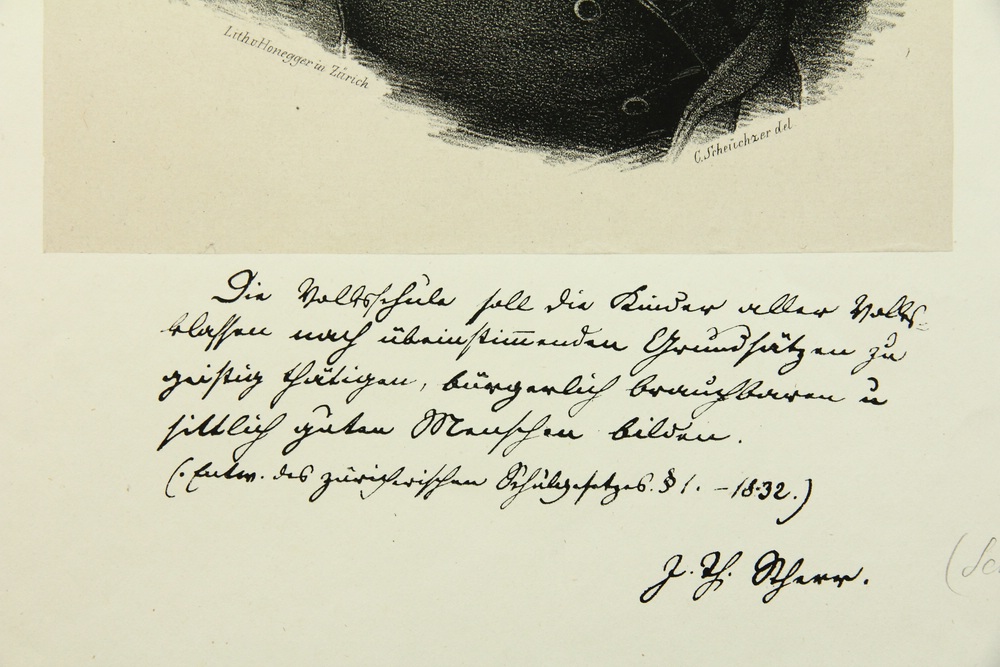 Lith. v Honegger in Zürich
C. Scheuchzer del
Die Volksschule soll die Kinder aller Volks-
klassen nach übeinstim̅enden Grundsätzen zu
geistig thätigen, bürgerlich brauchbaren u
sittlich guten Menschen bilden.
(. Entw. des züricherischen Schulgesetzes. § 1. – 1832.)
J. Th. Scherr.